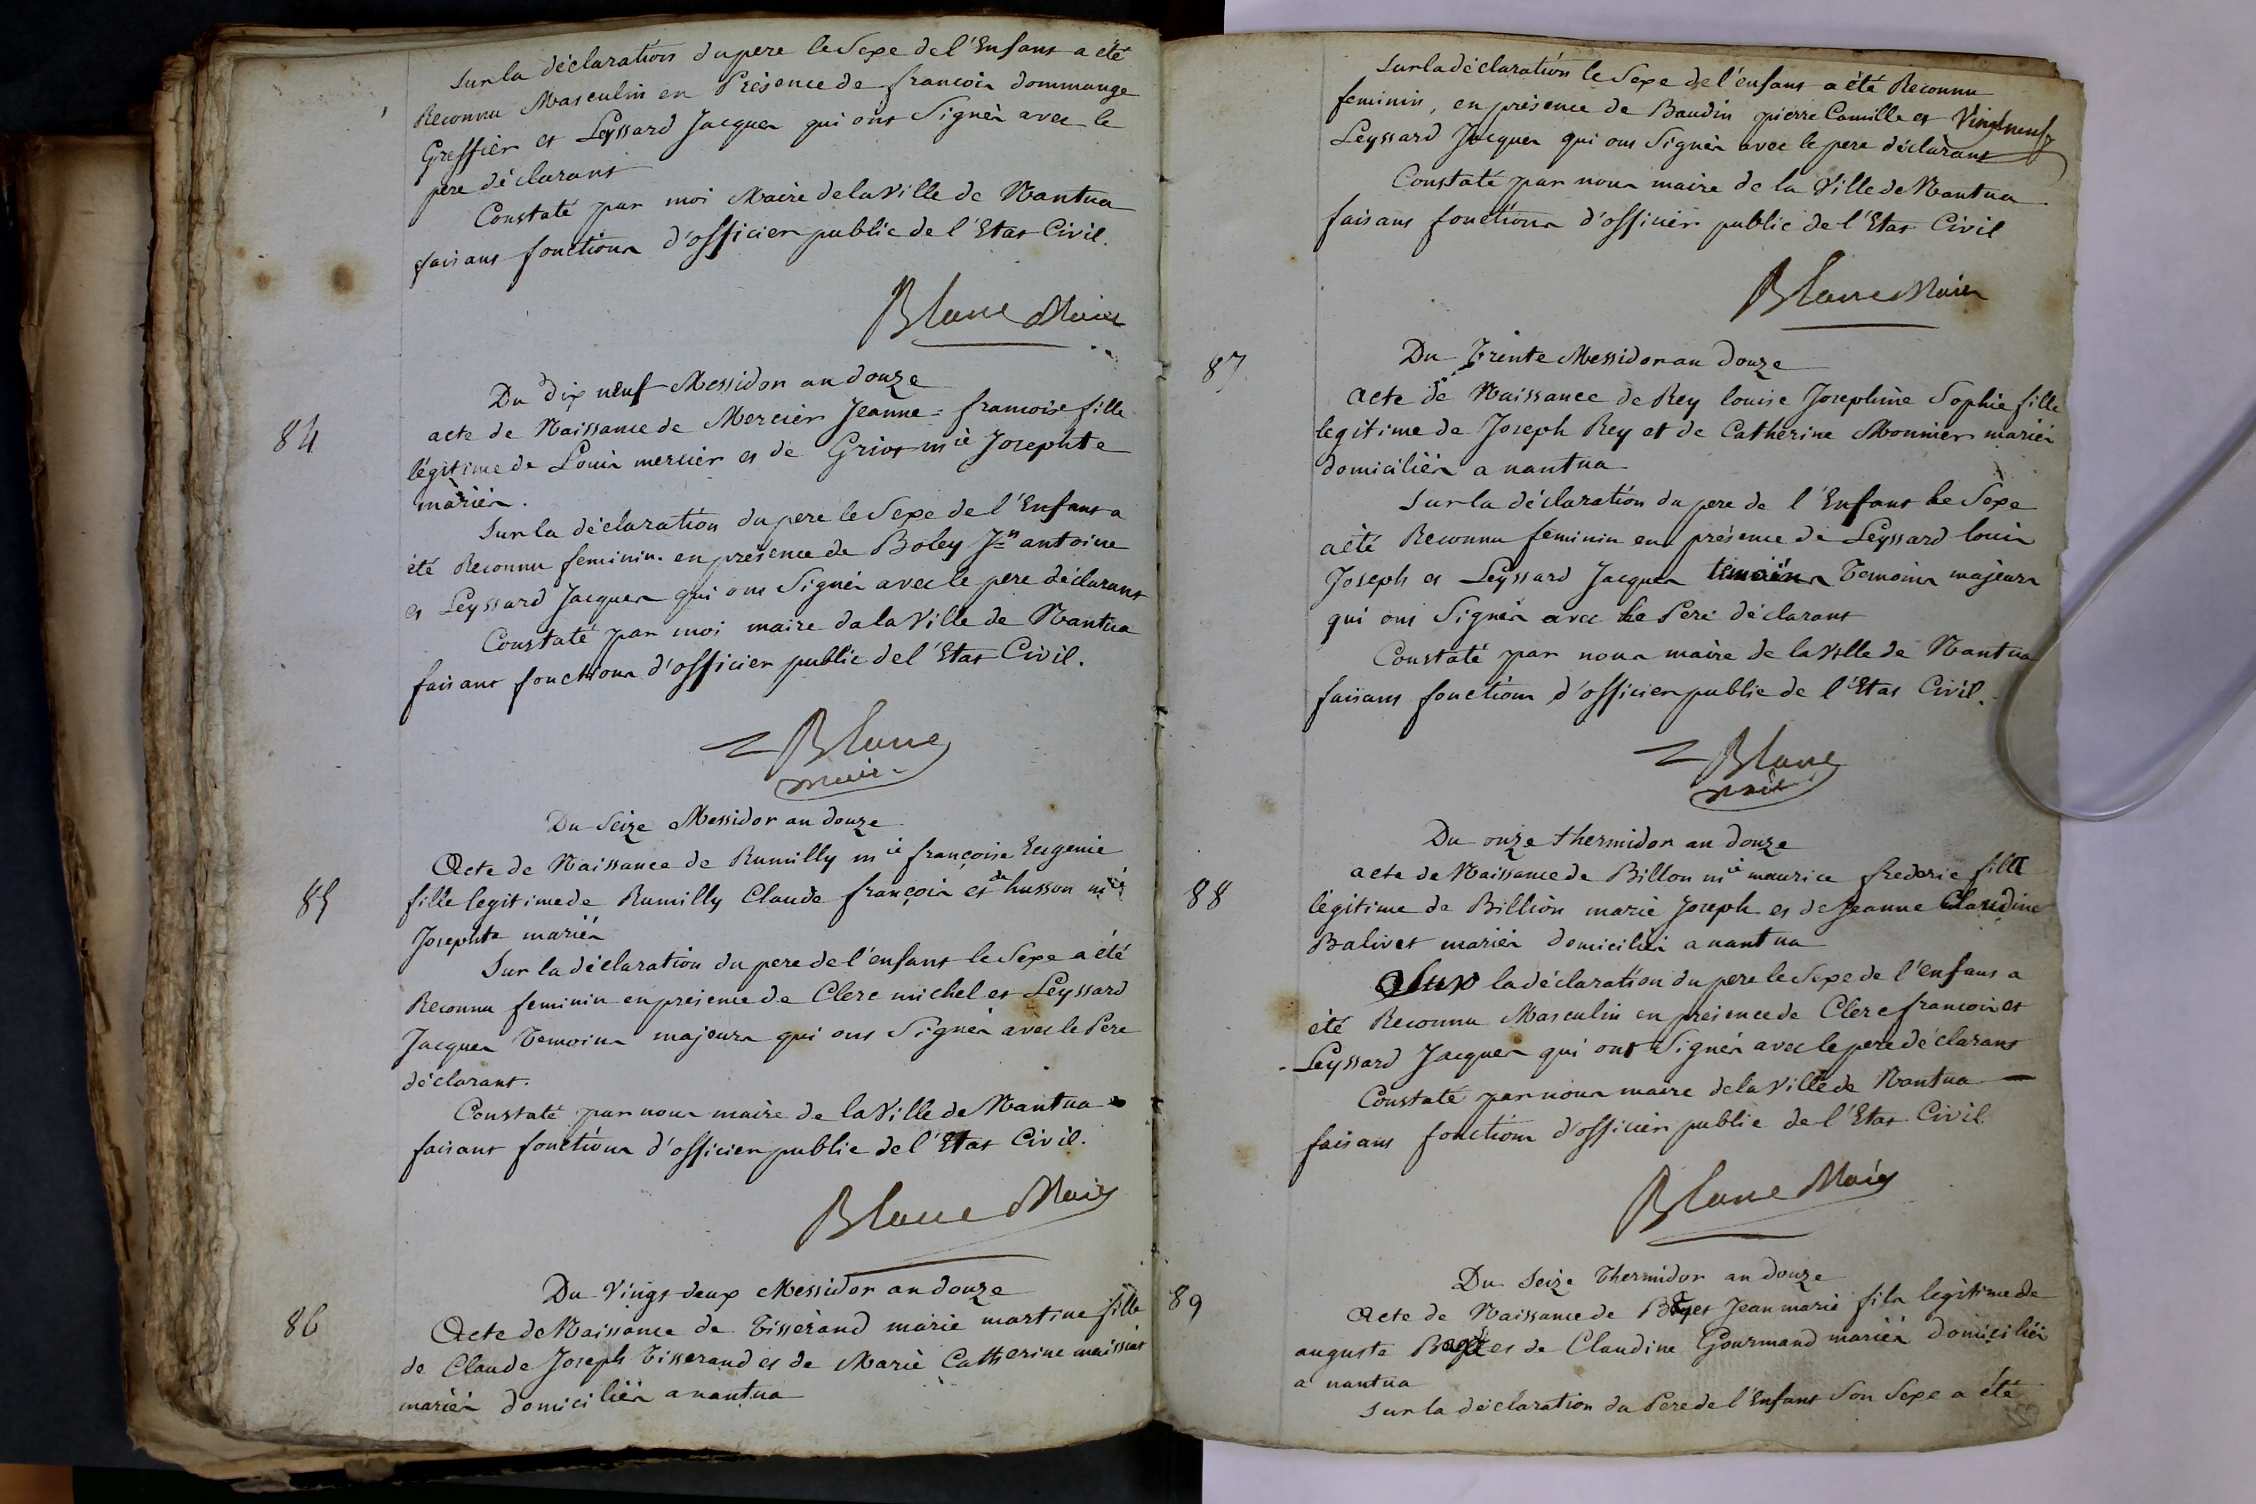 Sur la déclaration du pere le Sexe de l'Enfant a été
Reconnu Masculin en Présence de françois dommange
Greffier et Leyssard Jacques qui ont Signés avec le
pere déclarant
Constaté par moi Maire de la Ville de Nantua
faisant fonctions d'officier public de l'Etat Civil.
Blanc Maire
Du dix neuf Messidor an douze
84
acte de Naissance de Mercier Jeanne = francoise fille
légitime de Louis mercier et de Griot mie Josephte
mariés.
Sur la déclaration du pere le Sexe de l'Enfant a
été Reconnu feminin. en présence de Boley Jn antoine
et Leyssard Jacques qui ont Signés avec le pere déclarant
Constaté par moi maire da la Ville de Nantua
faisant fonctions d'officier public de l'Etat Civil.
Blanc
maire
Du Seize Messidor an douze
85
Acte de Naissance de Rumilly mie françoise Eugenie
fille legitime de Rumilly Claude françois et de husson mie
Josephte mariés
Sur la déclaration du pere de l'enfant le Sexe a été
Reconnu feminin en présence de Clerc michel et Leyssard
Jacques Temoins majeurs qui ont Signés avec le Pere
déclarant.
Constaté par nous maire de la Ville de Nantua
faisant fonctions d'officier public de l'Etat Civil.
Blanc Maire
Du Vingt deux Messidor an douze
86
Acte de Naissance de Tisserand marie martine fille
de Claude Joseph Tisserand et de Marie Catherine maissiat
mariés domiciliés a nantua
Sur la déclaration le Sexe de l'enfant a été Reconnu
feminin, en présence de Baudin pierre Camille et
Vingt neuf
Leyssard Jacques qui ont Signés avec le pere déclarant
Constaté par nous maire de la Ville de Nantua
faisant fonctions d'officier public de l'Etat Civil
Blanc Maire
Du Trente Messidor an douze
87
acte de Naissance de Rey louise Josephine Sophie fille
legitime de Joseph Rey et de Catherine Monnier mariés
domiciliés a nantua
Sur la déclaration du pere de l'Enfant le Sexe
a été Reconnu feminin en présence de Leyssard louis
Joseph et Leyssard Jacques temoins Temoins majeurs
qui ont Signés avec le Pere déclarant
Constaté par nous maire de la Ville de Nantua
faisant fonctions d'officier public de l'Etat Civil.
Blanc
maire
Du onze thermidor an douze
88
acte de Naissance de Billon mie maurice frederic fille
légitime de Billion marie Joseph et de Jeanne Claudine
Balivet mariés domiciliés a nantua
Sur la déclaration du pere le Sexe de l'enfant a
été Reconnu Masculin en présence de Clerc francois et
Leyssard Jacques qui ont Signés avec le pere déclarant
Constaté par nous maire de la Ville de Nantua
faisant fonctions d'officier public de l'Etat Civil
Blanc Maire
Du Seize Thermidor an douze
89
Acte de Naissance de Jean marie fils legitime de
auguste et de Claudine Gourmand mariés domiciliés
a nantua
Sur la déclaration du Pere de l'Enfant Son Sexe a été